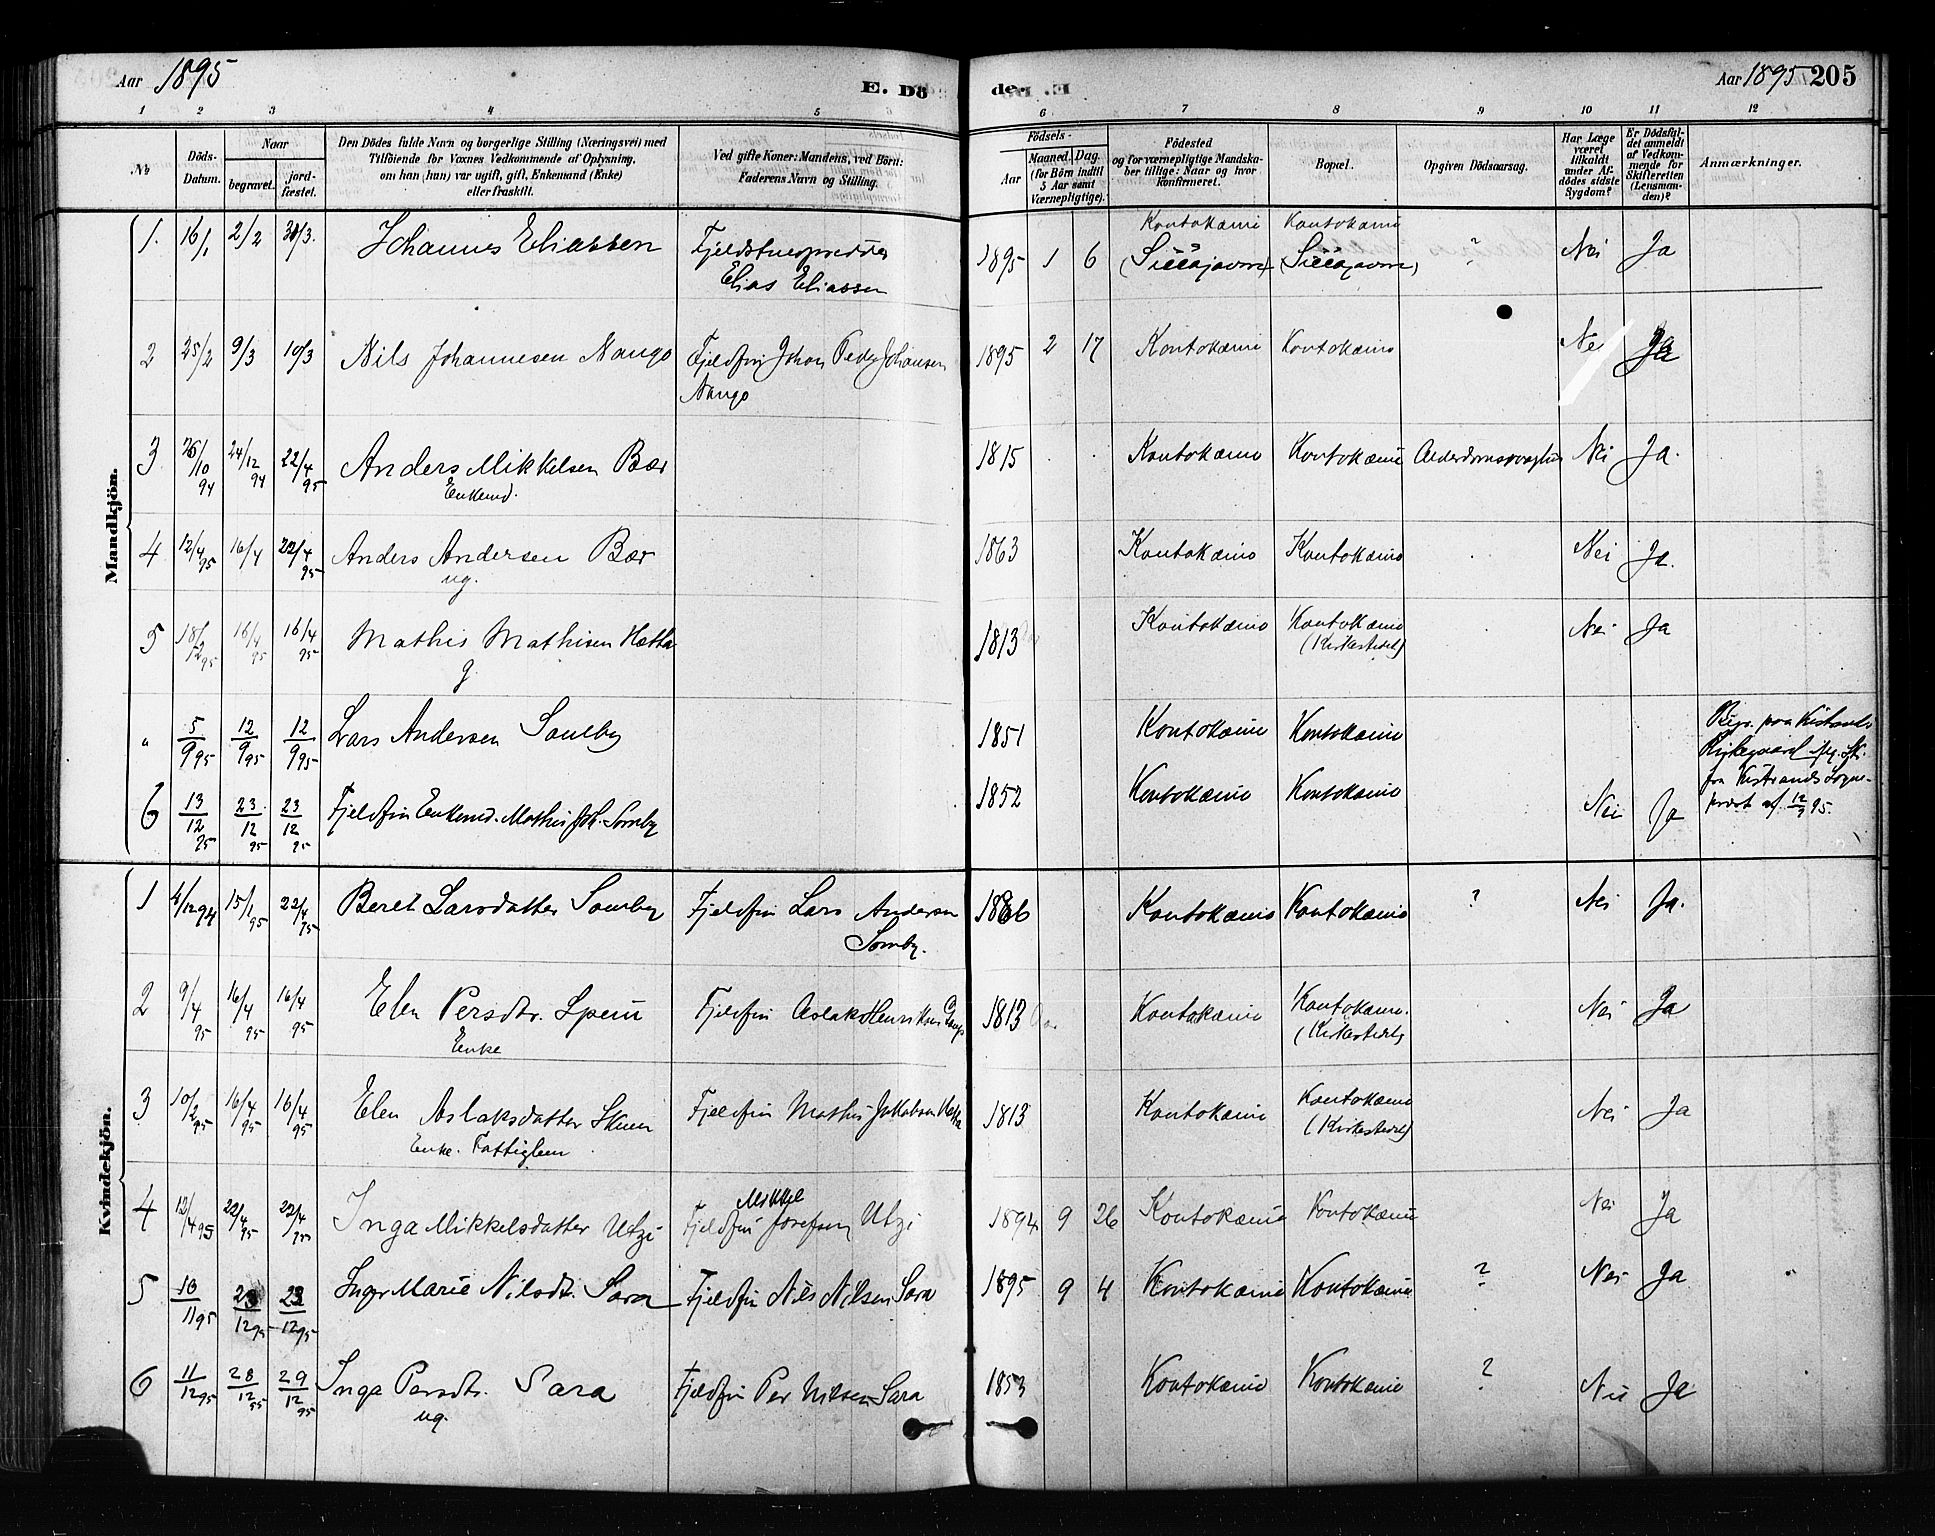 Aar 1895
E. Dö
de.
Aar 1895 205
1 2 3 4 5 6 7 8 9 10 11 12
No
Döds-Datum.
Naar
begravet.
jord-fæstet.
Den Dödes fulde Navn og borgerlige Stilling (Næringsvei) med
Tilföiende for Voxnes Vedkommende af Oplysning,
om han (hun) var ugift, gift, Enkemand (Enke)
eller fraskilt.
Ved gifte Koner: Mandens, ved Börn:
Faderens Navn og Stilling.
Födsels-
Aar
Maaned. Dag.
(for Börn indtil
5 Aar samt
Værnepligtige).
Födested
og for værnepligtige Mandska-
ber tillige: Naar og hvor
konfirmeret.
Bopæl.
Opgiven Dödsaarsag.
Har Læge
været
tilkaldt
under Af-
dödes sidste
Sygdom?
Er Dödsfal-
det anmeldt
af Vedkom-
mende for
Skifteretten
(Lensman-
den)?
Anmærkninger.
Mandkjön.
1. 16/1 2/2 31/3. Johannes Eliassen Elias Eliassen 1895 1 6 Koutokæino (Siccajavrre) Koutokæino (Siccajavrre) ? Nei Ja
2 25/2 9/3 10/3 Nils Johannesen Nango Fjeldfin Johan Peder Johansen Nango 1895 2 17 Koutokæino Koutokæino Nei Ja
3 26/10 94 24/12 94 22/4 95 Anders Mikkelsen Bær Enkemd. 1815 Koutokæino Koutokæino Alderdomssvaghed Nei Ja.
4 12/4 95 16/4 22/4 95 Anders Andersen Bær ug. 1863 Koutokæino Koutokæino Nei Ja.
5 18/12 95 16/4 95 16/4 95 Mathis Mathisen Hætta g. 1813 Koutokæino Koutokæino (Kirkestedet) Nei Ja
" 5/9 95 12/9 95 12/9 95 Lars Andersen Somby 1851 Koutokæino Koutokæino Begr. paa Kistrands Kirkegaard fra Kistrands Sogneprest af 12/9 95.
6 13/12 95 23/12 95 23/12 95 Fjeldfin Enkemd. Mathis Joh. Somby 1852 Koutokæino Koutokæino Nei Ja
Kvindekjön.
1 4/12 94 15/1 95 22/4 95 Beret Larsdatter Somby Fjeldfin Lars Andersen Somby. 1886 Koutokæino Koutokæino ? Nei Ja.
2 9/4 95 16/4 95 16/4 95 Elen Persdtr. Spein Enke Fjeldfin Aslak Henriksen 1813 Koutokæino Koutokæino. (Kirkestedet) Nei Ja
3 10/2 95 16/4 95 16/4 95 Elen Aslaksdatter Skum Enke. Fattiglem Fjeldfin Mathis Jakobsen Hætta 1813 Koutokæino Koutokæino (Kirkestedet) Nei Ja
4 12/4 95 22/4 95 22/4 95 Inga Mikkelsdatter Utzi Fjeldfin Mikkel Josefsen Utzi 1894 9 26 Koutokæino Koutokæino Nei Ja
5 10/11 95 23/12 95 23/12 95 Inger Marie Nilsdt. Sara Fjeldfin Nils Nilsen Sara 1895 9 4 Koutokæino Koutokæino ? Nei Ja
6 11/12 95 28/12 95 29/12 95 Inga Persdtr. Sara ug. Fjeldfin Per Nilsen Sara 1853 Koutokæino Koutokæino ? Nei Ja